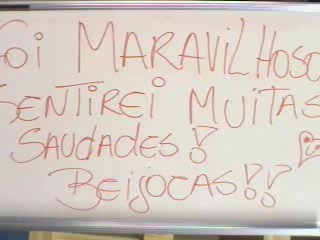 Foi MARAVILHOSO
SENTIREI MUITAS
SAUDADES!
BEIJOCAS!!